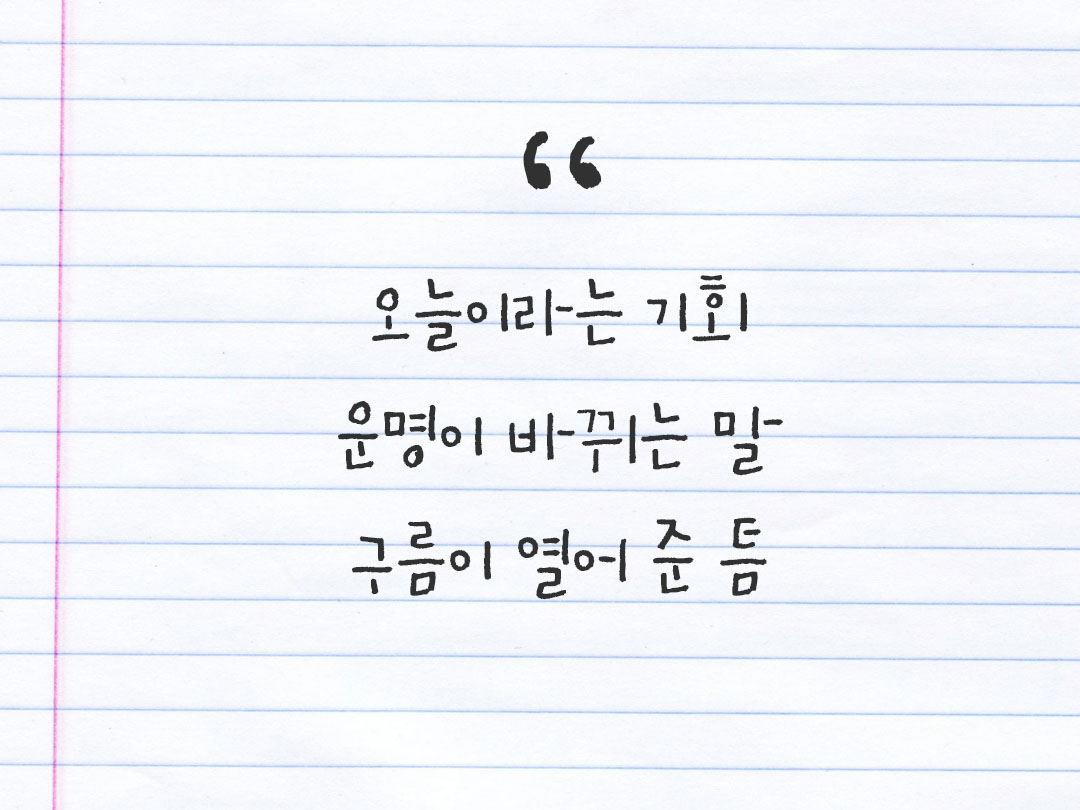 “
오늘이라는 기회
운명이 바뀌는 말
구름이 열어 준 틈